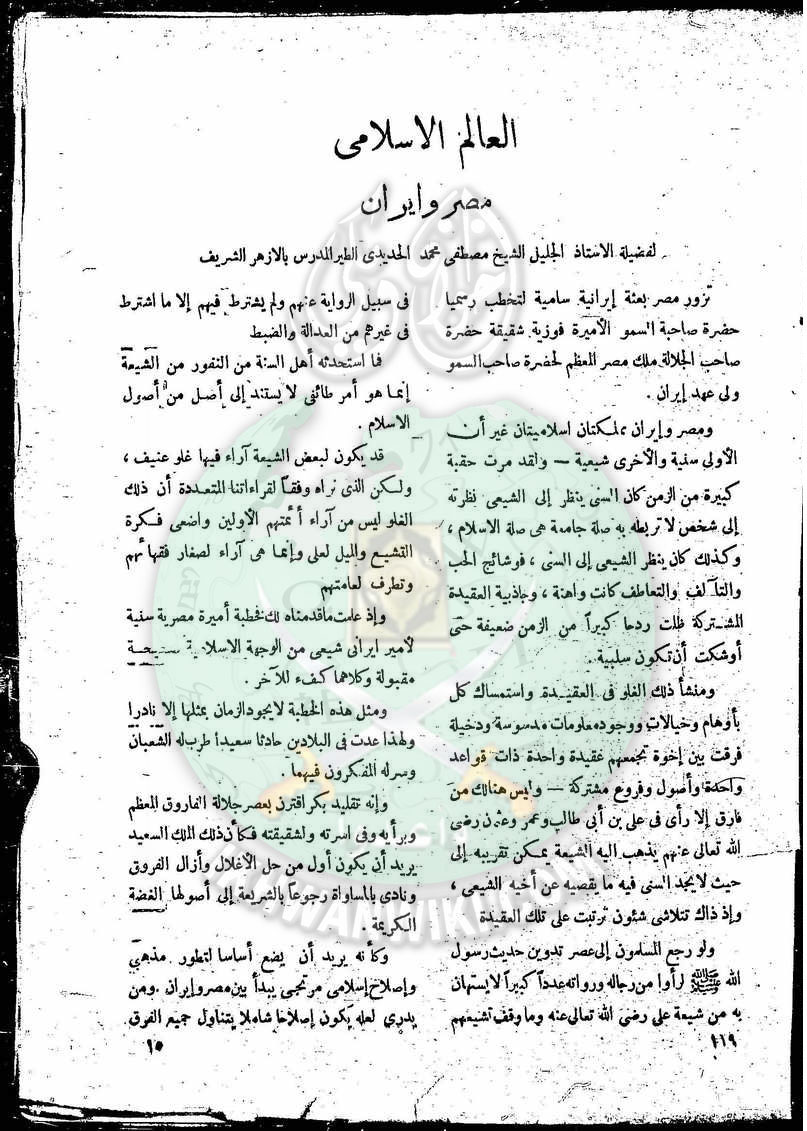 العالم الاسلامى
مصر وايران
لفضيلة الاستاذ الجليل الشيخ مصطفى محمد الحديدى الطير المدرس بالازهر الشريف
تزور مصر بعثة إيرانية سامية لتخطب رسميا
حضرة صاحبة السمو الأميرة فوزية شقيقة حضرة
صاحب الجلالة ملك مصر المعظم لحضرة صاحب السمو
ولى عهد إيران .
ومصر وإيران مملكتان اسلاميتان غير أن
الأولى سنية والأخرى شيعية — ولقد مرت حقبة
كبيرة من الزمن كان السنى ينظر إلى الشيعى نظرته
إلى شخص لا تربطه به صلة جامعة هى صلة الاسلام ،
وكذلك كان ينظر الشيعى إلى السنى ، فوشائج الحب
والتآلف والتعاطف كانت واهنة ، وجاذبية العقيدة
المشتركة ظلت ردحا كبيراً من الزمن ضعيفة حتى
أوشكت أن تكون سلبية .
ومنشأ ذلك الغلو فى العقيدة واستمساك كل
بأوهام وخيالات ووجود معلومات مدسوسة ودخيلة
فرقت بين إخوة تجمعهم عقيدة واحدة ذات قواعد
واحدة وأصول وفروع مشتركة — وليس هنالك من
فارق إلا رأى فى على بن أبى طالب وعمر وعثمن رضى
الله تعالى عنهم يذهب اليه الشيعة يمكن تقريبه إلى
حيث لا يجد السنى فيه ما يقصيه عن أخيه الشيعى ،
وإذ ذاك تتلاشى شئون ترتبت على تلك العقيدة
ولو رجع المسلمون إلى عصر تدوين حديث رسول
الله ﷺ لرأوا من رجاله ورواته عدداً كبيراً لا يستهان
به من شيعة على رضى الله تعالى عنه وما وقف تشيعهم
١١٩
فى سبيل الرواية عنهم ولم يشترط فيهم إلا ما اشترط
فى غيرهم من العدالة والضبط
فما استحدثه أهل السنة من النفور من الشيعة
إنما هو أمر طائفى لا يستند إلى أصل من أصول
الاسلام .
قد يكون لبعض الشيعة آراء فيها غلو عنيف ،
ولكن الذى نراه وفقاً لقراءاتنا المتعددة أن ذلك
الغلو ليس من آراء أئمتهم الأولين واضعى فكرة
التشيع والميل لعلى وإنما هى آراء لصغار فقهائهم
وتطرف لعامتهم
وإذ علمت ما قدمناه لك فخطبة أميرة مصرية سنية
لأمير ايرانى شيعى من الوجهة الاسلامية صحيحة
مقبولة وكلاهما كفء للآخر .
ومثل هذه الخطبة لا يجود الزمان بمثلها إلا نادرا
ولهذا عدت فى البلادين حادثا سعيداً طرب له الشعبان
وسر له المفكرون فيهما .
وإنه تقليد بكر اقترن بعصر جلالة الفاروق المعظم
وبرأيه وفى اسرته ولشقيقته فكأن ذلك الملك السعيد
يريد أن يكون أول من حل الأغلال وأزال الفروق
ونادى بالمساواة رجوعاً بالشريعة إلى أصولها الغضة
الكريمة .
وكأنه يريد أن يضع أساسا لتطور مذهبى
وإصلاح إسلامى مرتجى يبدأ بين مصر وإيران . ومن
يدرى لعله يكون إصلاحا شاملا يتناول جميع الفرق
١٥
واعدوا
IKHWANWIKI.COM